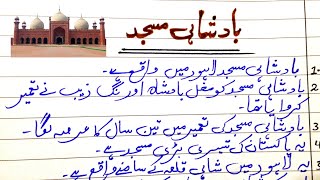 بادشاہی مسجد
1- بادشاہی مسجد لاہور میں واقع ہے۔
2 بادشاہی مسجد کو مغل بادشاہ اورنگ زیب نے تعمیر
کروایا تھا۔
3 بادشاہی مسجد کی تعمیر میں تین سال کا عرصہ لگا۔
4 یہ پاکستان کی تیسری بڑی مسجد ہے۔
5 یہ لاہور میں شاہی قلعہ کے سامنے واقع ہے۔